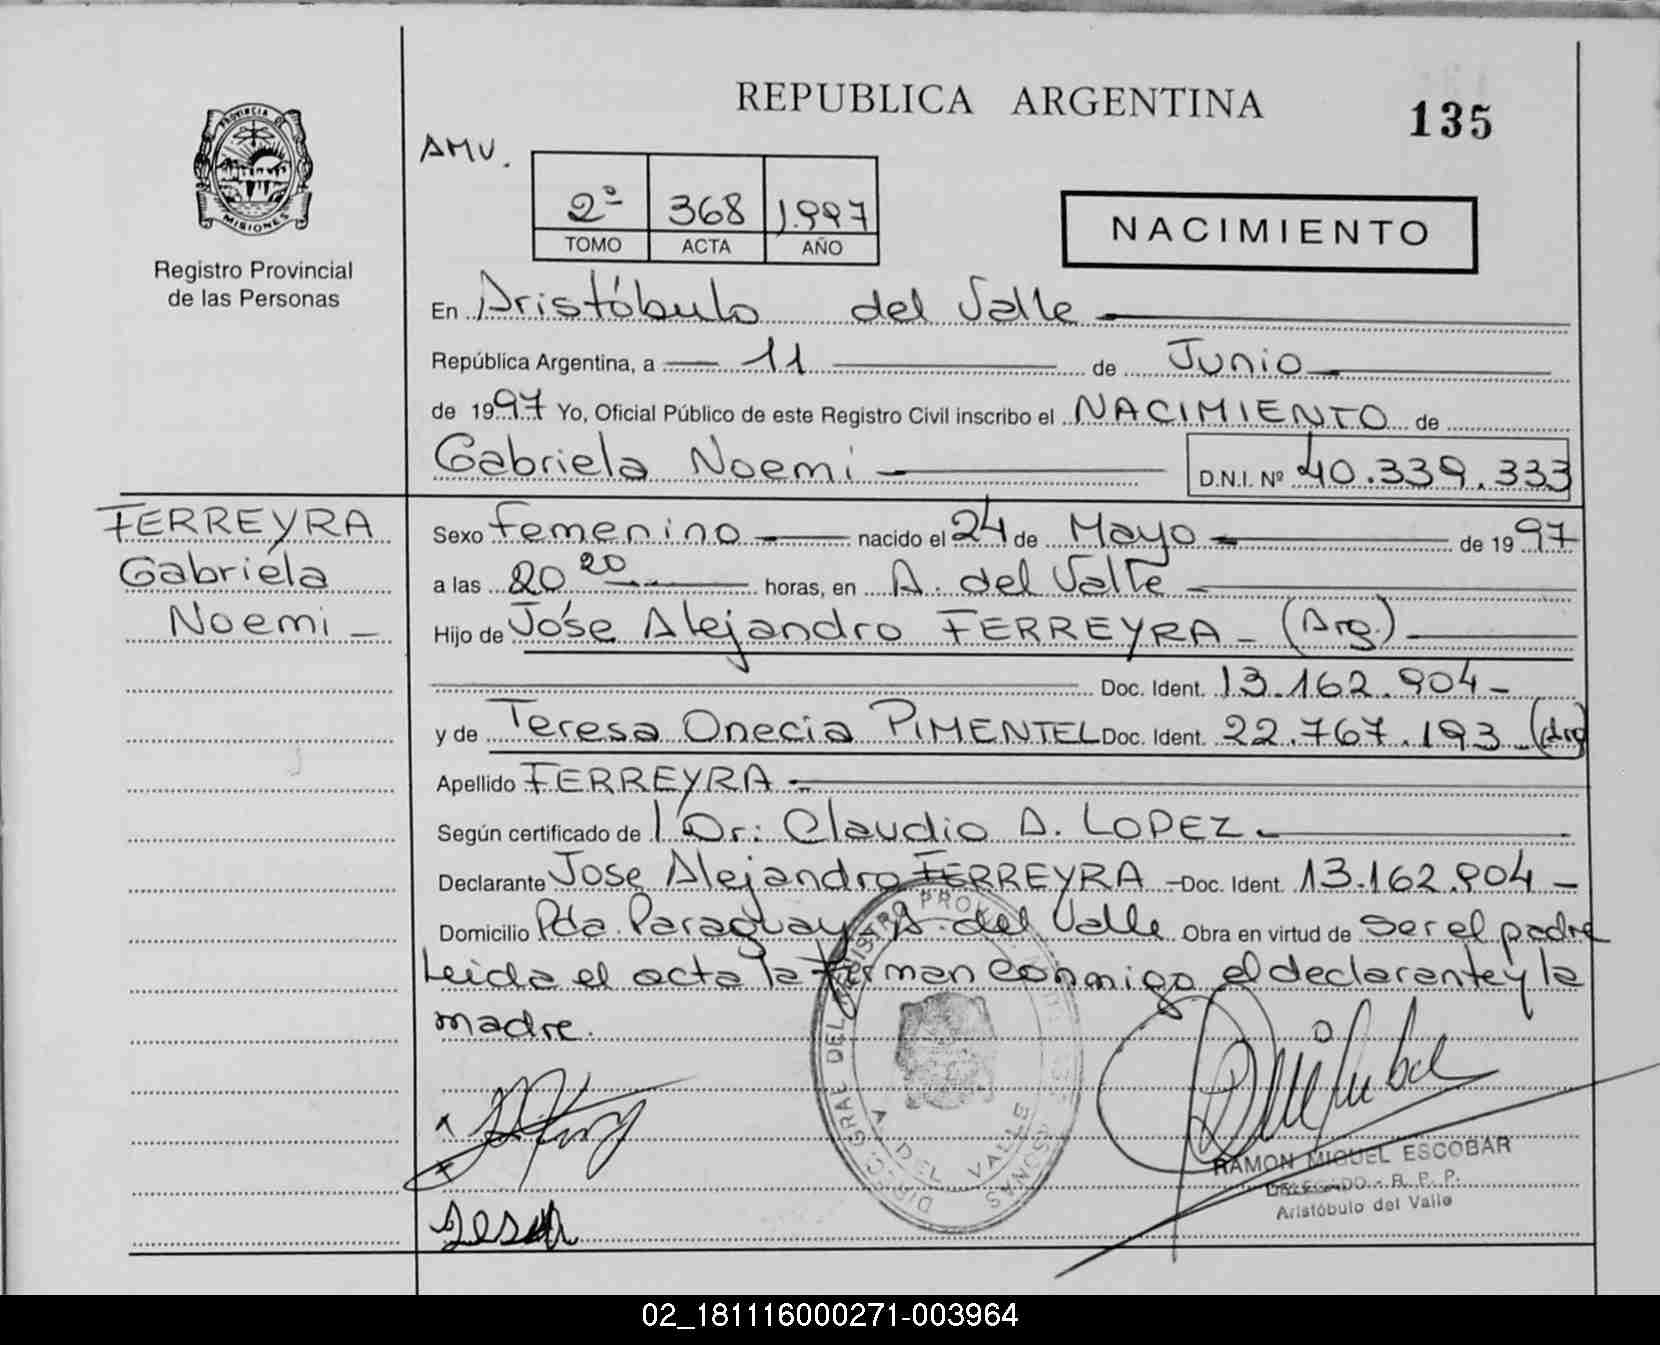 REPUBLICA ARGENTINA
135
AMV.
PROVINCIA DE
MISIONES
Registro Provincial
de las Personas
2º 368 1.997
TOMO ACTA AÑO
NACIMIENTO
En Aristóbulo del Valle
República Argentina, a 11 de Junio
de 1997 Yo, Oficial Público de este Registro Civil inscribo el NACIMIENTO de
Gabriela Noemi D.N.I. Nº 40.339.333
FERREYRA
Gabriela
Noemi
Sexo Femenino nacido el 24 de Mayo de 1997
a las 20 20 horas, en A. del Valle
Hijo de José Alejandro FERREYRA - (Arg.)
Doc. Ident. 13.162.904 -
y de Teresa Onecia PIMENTEL Doc. Ident. 22.767.193 (Arg
Apellido FERREYRA
Según certificado de l Dr: Claudio D. LOPEZ
Declarante Jose Alejandro FERREYRA - Doc. Ident. 13.162.904 -
Domicilio Pda. Paraguay A. del Valle Obra en virtud de ser el padre
Leida el acta la firman conmigo el declarante y la
madre.
DIREC. GRAL DEL REGISTRO PROV
A DEL VALLE
RAMON MIGUEL ESCOBAR
DELEGADO - R. P. P.
Aristóbulo del Valle
02_181116000271-003964